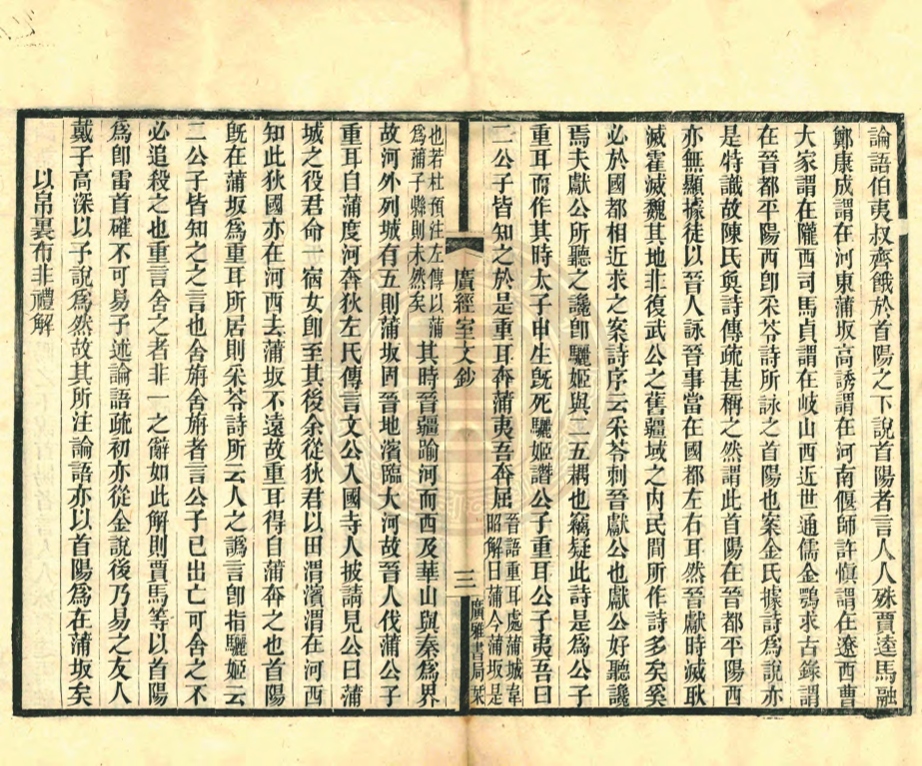 論語伯夷叔齊餓於首陽之下說首陽者言人人殊賈逵馬融
鄭康成謂在河東蒲坂高誘謂在河南偃師許慎謂在遼西曹
大家謂在隴西司馬貞謂在岐山西近世通儒金鶚求古錄謂
在晉都平陽西卽采苓詩所詠之首陽也案金氏據詩爲說亦
是特識故陳氏奐詩傳疏甚稱之然謂此首陽在晉都平陽西
亦無顯據徒以晉人詠晉事當在國都左右耳然晉獻時滅耿
滅霍滅魏其地非復武公之舊疆域之內民間所作詩多矣奚
必於國都相近求之案詩序云采苓刺晉獻公也獻公好聽讒
焉夫獻公所聽之讒卽驪姬與二五耦也竊疑此詩是爲公子
重耳而作其時太子申生旣死驪姬譖公子重耳公子夷吾曰
二公子皆知之於是重耳奔蒲夷吾奔屈晉語重耳處蒲城韋
昭解曰蒲今蒲坂是
廣經室文鈔
三
廣雅書局栞
也若杜預注左傳以蒲
爲蒲子縣則未然矣其時晉疆踰河而西及華山與秦爲界
故河外列城有五則蒲坂固晉地濱臨大河故晉人伐蒲公子
重耳自蒲度河奔狄左氏傳言文公入國寺人披請見公曰蒲
城之役君命一宿女卽至其後余從狄君以田渭濱渭在河西
知此狄國亦在河西去蒲坂不遠故重耳得自蒲奔之也首陽
旣在蒲坂爲重耳所居則采苓詩所云人之譌言卽指驪姬云
二公子皆知之之言也舍旃舍旃者言公子已出亡可舍之不
必追殺之也重言舍之者非一之辭如此解則賈馬等以首陽
爲卽雷首確不可易予述論語疏初亦從金說後乃易之友人
戴子高深以予說爲然故其所注論語亦以首陽爲在蒲坂矣
以帛裏布非禮解